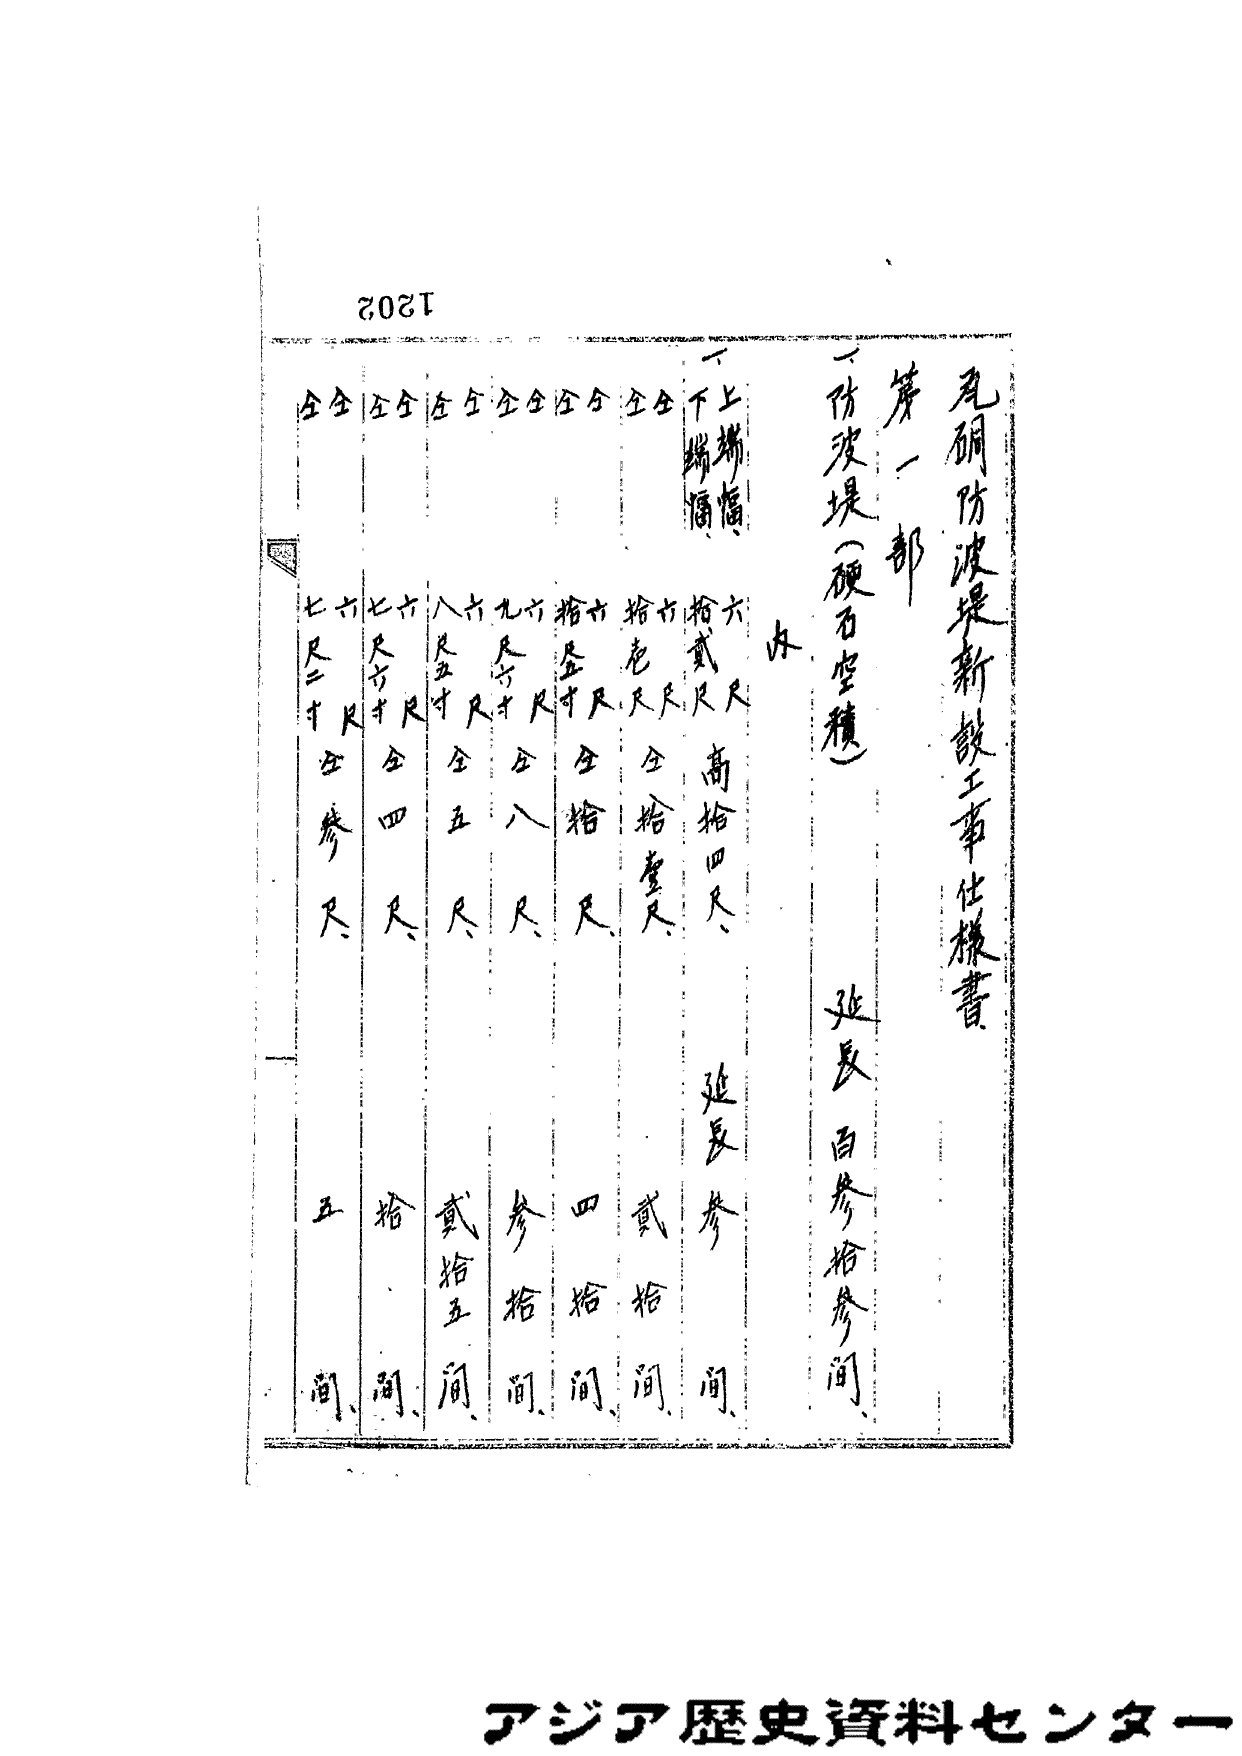 1202
瓦硐防波堤新設工事仕様書
第一部
一、防波堤(硬石空積) 延長 百参拾参間、
内
一、上端幅、六尺 下端幅、拾貳尺 高拾四尺、 延長 参間、
仝 六尺 仝 拾壱尺 仝 拾壹尺、 貳拾間、
仝 六尺 仝 拾尺五寸 仝 拾尺、 四拾間、
仝 六尺 仝 九尺六寸 仝 八尺、 参拾間、
仝 六尺 仝 八尺五寸 仝 五尺、 貳拾五間、
仝 六尺 仝 七尺六寸 仝 四尺、 拾間、
仝 六尺 仝 七尺二寸 仝 参尺、 五間、
アジア歴史資料センター